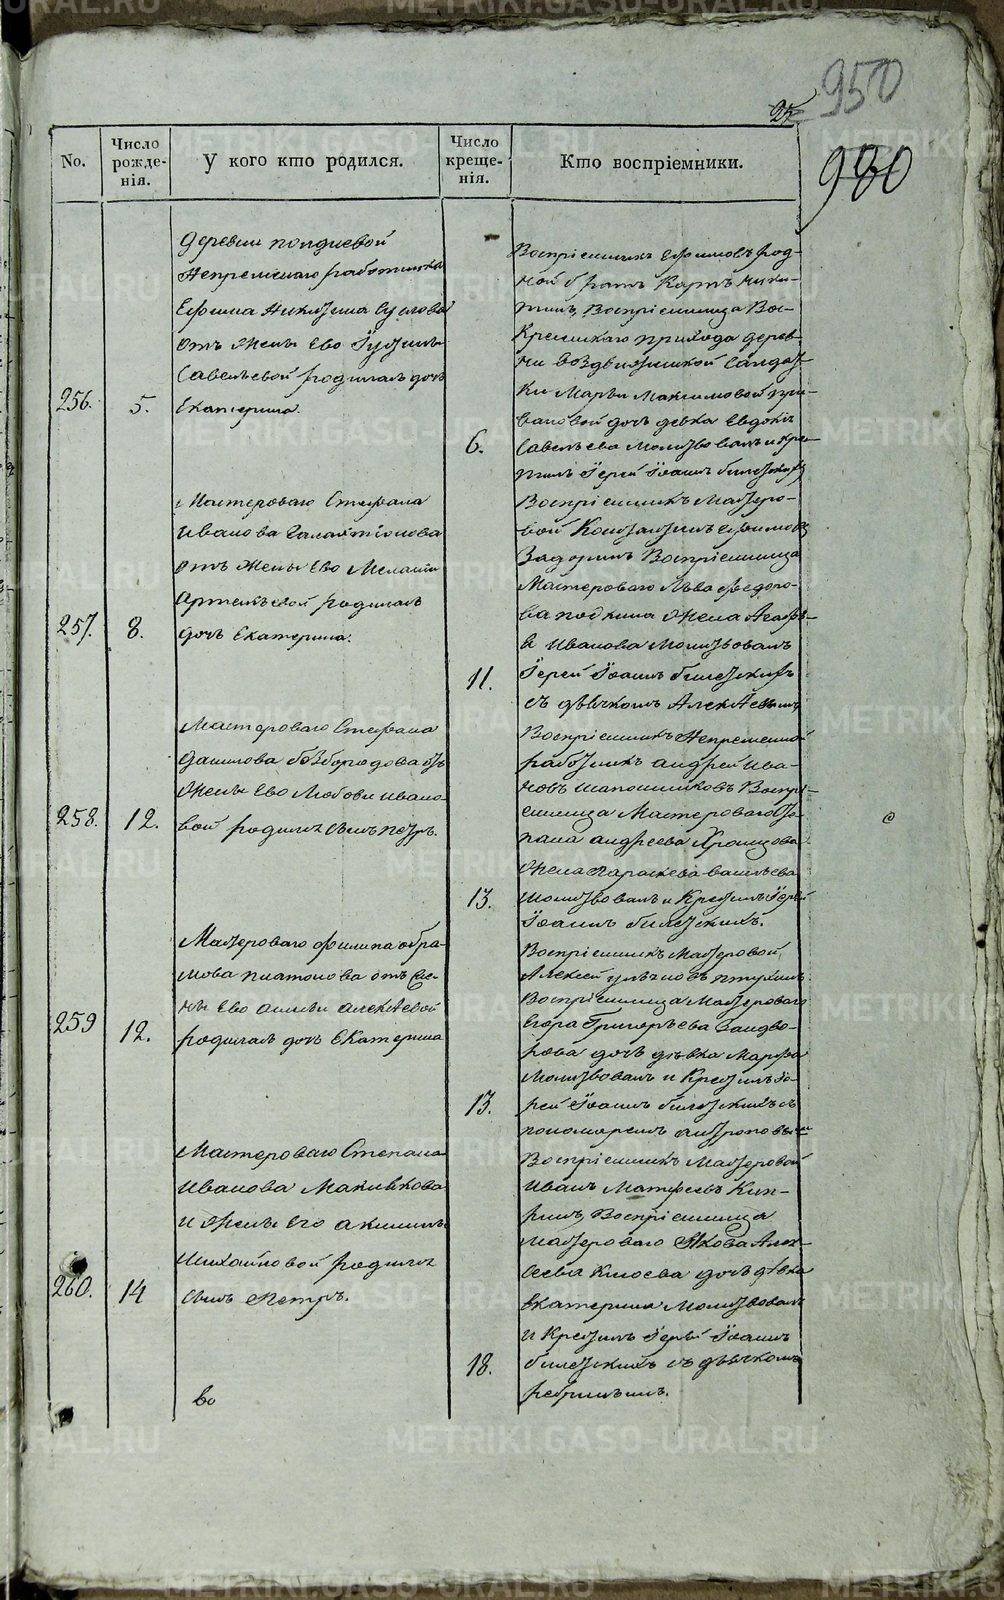 950
25
900
No.
Число рожде-нія.
У кого кто родился.
Число креще-нія.
Кто воспріемники.
256.
5.
деревни
Непременнаго работника
Ефима Никитина Суслова
отъ жены Ево
Савельевой родилась дочь
Екатерина.
6.
Воспріемникъ Ефимовъ род-
ной братъ Карпъ Ники-
тинъ, Воспріемница Вос-
кресенскаго прихода дерев-
ни Воздвиженской Салдат-
ки Марьи Максимовой При-
валовой дочь девка Евдокія
Савельева Молитвовалъ и кре-
стилъ Іерей Іоаннъ
257.
8.
Мастероваго Стефана
Иванова Галактіонова
отъ жены Ево Меланіи
Артемьевой родилась
дочь Екатерина.
11.
Воспріемникъ Мастеро-
вой Константинъ Ефимовъ
Задоринъ Воспріемница
Мастероваго Льва Федоро-
ва жена Агаф-
Иванова Молитвовалъ
Іерей Іоаннъ
съ дьячкомъ Алексѣевымъ
258.
12.
Мастероваго Стефана
Данилова Безбородова отъ
жены Ево Любови Ивано-
вой родился сынъ Петръ.
13.
Воспріемникъ Непременной
работникъ Андрей Ива-
новъ Шапошниковъ Воспрі-
емница Мастероваго По-
тапа Андреева Храмцова
жена Параскева Васильева
Молитвовалъ и Крестилъ Іерей
Іоаннъ
259
12.
Мастероваго Филипа Абра-
мова Платонова отъ Же-
ны Ево Анны Алексѣевой
родилась дочь Екатерина
13.
Воспріемникъ Мастеровой
Алексей
Воспріемница Мастероваго
Егора Григорьева
дочь дѣвка Марфа
Молитвовалъ и Крестилъ Іе-
рей Іоаннъ съ
пономаремъ
260.
14
Мастероваго Степана
Иванова
и жены Его Акилины
Михайловой родился
сынъ Петръ.
18.
Воспріемникъ Мастеровой
Иванъ Матфеевъ Кип-
ринъ, Воспріемница
Мастероваго Якова Алек-
сеева Киосева дочь дѣвка
Екатерина Молитвовалъ
и Крестилъ Іерей Іоаннъ
съ дьячкомъ
во
METRIKI.GASO-URAL.RU